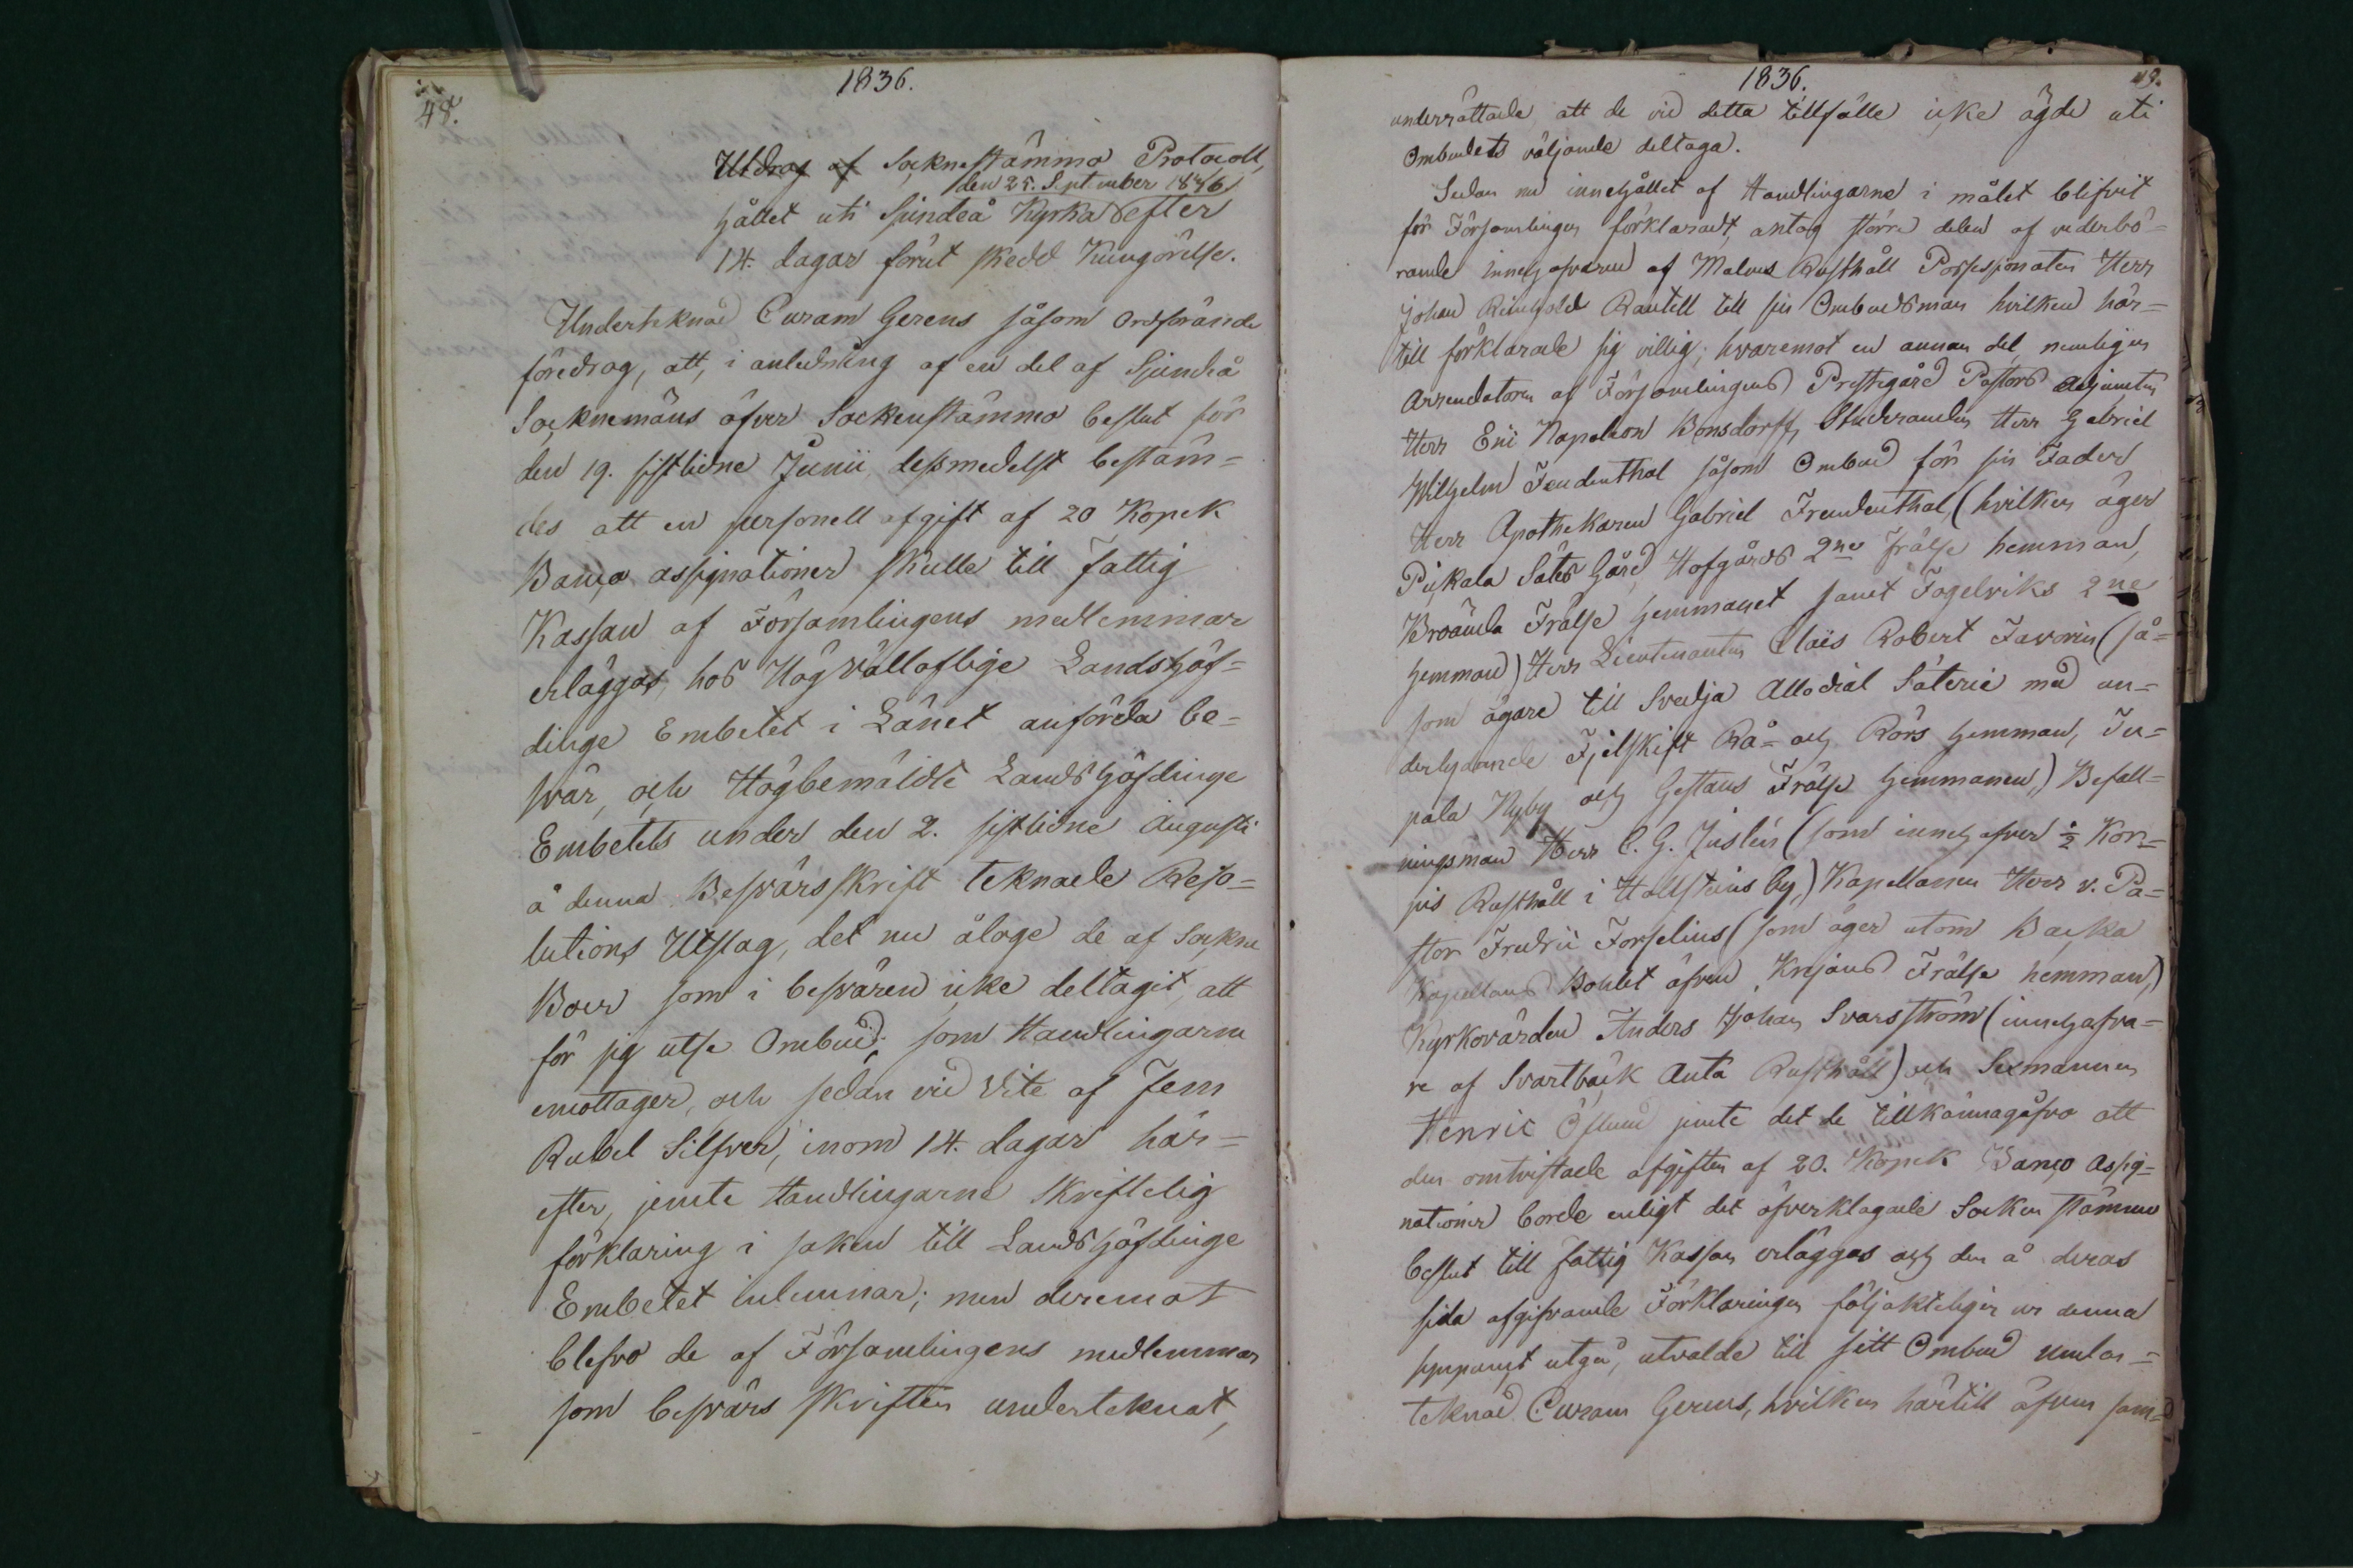 48.
1836.
Utdrag af Socknestämmo Protocoll,
den 25. September 1836
hållet uti Sjundeå Kyrka efter
14. dagar förut skedd Kungörelse.
Underteknad Curam Gerens såsom Ordförande
föredrog, att, i anledning af en del af Sjundeå
Socknemäns öfver Sockenstämmo beslut för
den 19. sistlidne Junii, dessmedelst bestäm=
des att en personell afgift af 20 Kopek
Banco assignationer skulle till Fattig
Kassan af Församlingens medlemmar
erläggas, hos Högvällofliga Landshöf=
dinge Embetet i Länet anförda be=
svär, och Högbemäldte Landshöfdinge
Embetets under den 2. sistlidne Augusti
å denna Besvärsskrift teknade Reso=
lutions Utslag, det nu åloge de af Sockne
Boer som i besvären icke deltagit, att
för sig utse Ombud, som Handlingarne
emottager, och sedan vid Vite af Fem
Rubel Silfver, inom 14. dagar här=
efter, jemte Handlingarne skriftelig
förklaring i saken till Landshöfdinge
Embetet inlemnar; men deremot
blefvo de af Församlingens medlemmar
som besvärs skriften underteknat,
1836.
49.
underrättade att de vid detta tillfälle icke ägde uti
Ombudets väljande deltaga.
Sedan nu innehållet af Handlingarne i målet blifvit
för Församlingen förklaradt, antog större delen af vederbö=
rande innehafvaren af Malms Rusthåll Possessionaten Herr
Johan Reinhold Rantell till sin Ombudsman hvilken här=
till förklarade sig villig; hvaremot en annan del, nemligen
Arrendatoren af Församlingens Prestegård Pastors Adjuncten
Herr Eric Napoleon Bonsdorff, Studeranden Herr Gabriel
Wilhelm Freudenthal såsom Ombud för sin Fader
Herr Apothekaren Gabriel Freudenthal, (hvilken äger
Pickala Säters Gård, Hofgårds 2ne Frälse hemman,
Broända Frälse hemmanet samt Fogelviks 2ne
hemman) Herr Lieutenanten Claës Robert Favorin (så=
som ägare till Svedja Allodial Säterie med un=
derlydande Fjelskift Rå= och Rörs hemman, Tu=
pala Nyby och Gestans Frälse hemmanen,) Befall=
ningsman Herr C. G. Juslén (som innehafver ½ Kor=
pis Rusthåll i Hollstens by,) Kapellanen Herr v. Pa=
stor Fredric Forselius (som äger utom Backa
Kapellans Bohlet äfven Krejans Frälse hemman,)
Kyrkovärden Anders Johan Svarsström (innehafva=
re af Svartbäck Anta Rusthåll) och Sexmannen
Henric Öflund jemte det de tillkännagåfvo att
den omtvistade afgiften af 20. Kopek Banco Assig=
nationer borde enligt det öfverklagade Socken stämmo
beslut till Fattig Kassan erläggas och den å deras
sida afgifvande Förklaringen följakteligen ur denna
synpunct utgå, utvalde till sitt Ombud under=
teknad Curam Gerens, hvilken härtill äfven sam=